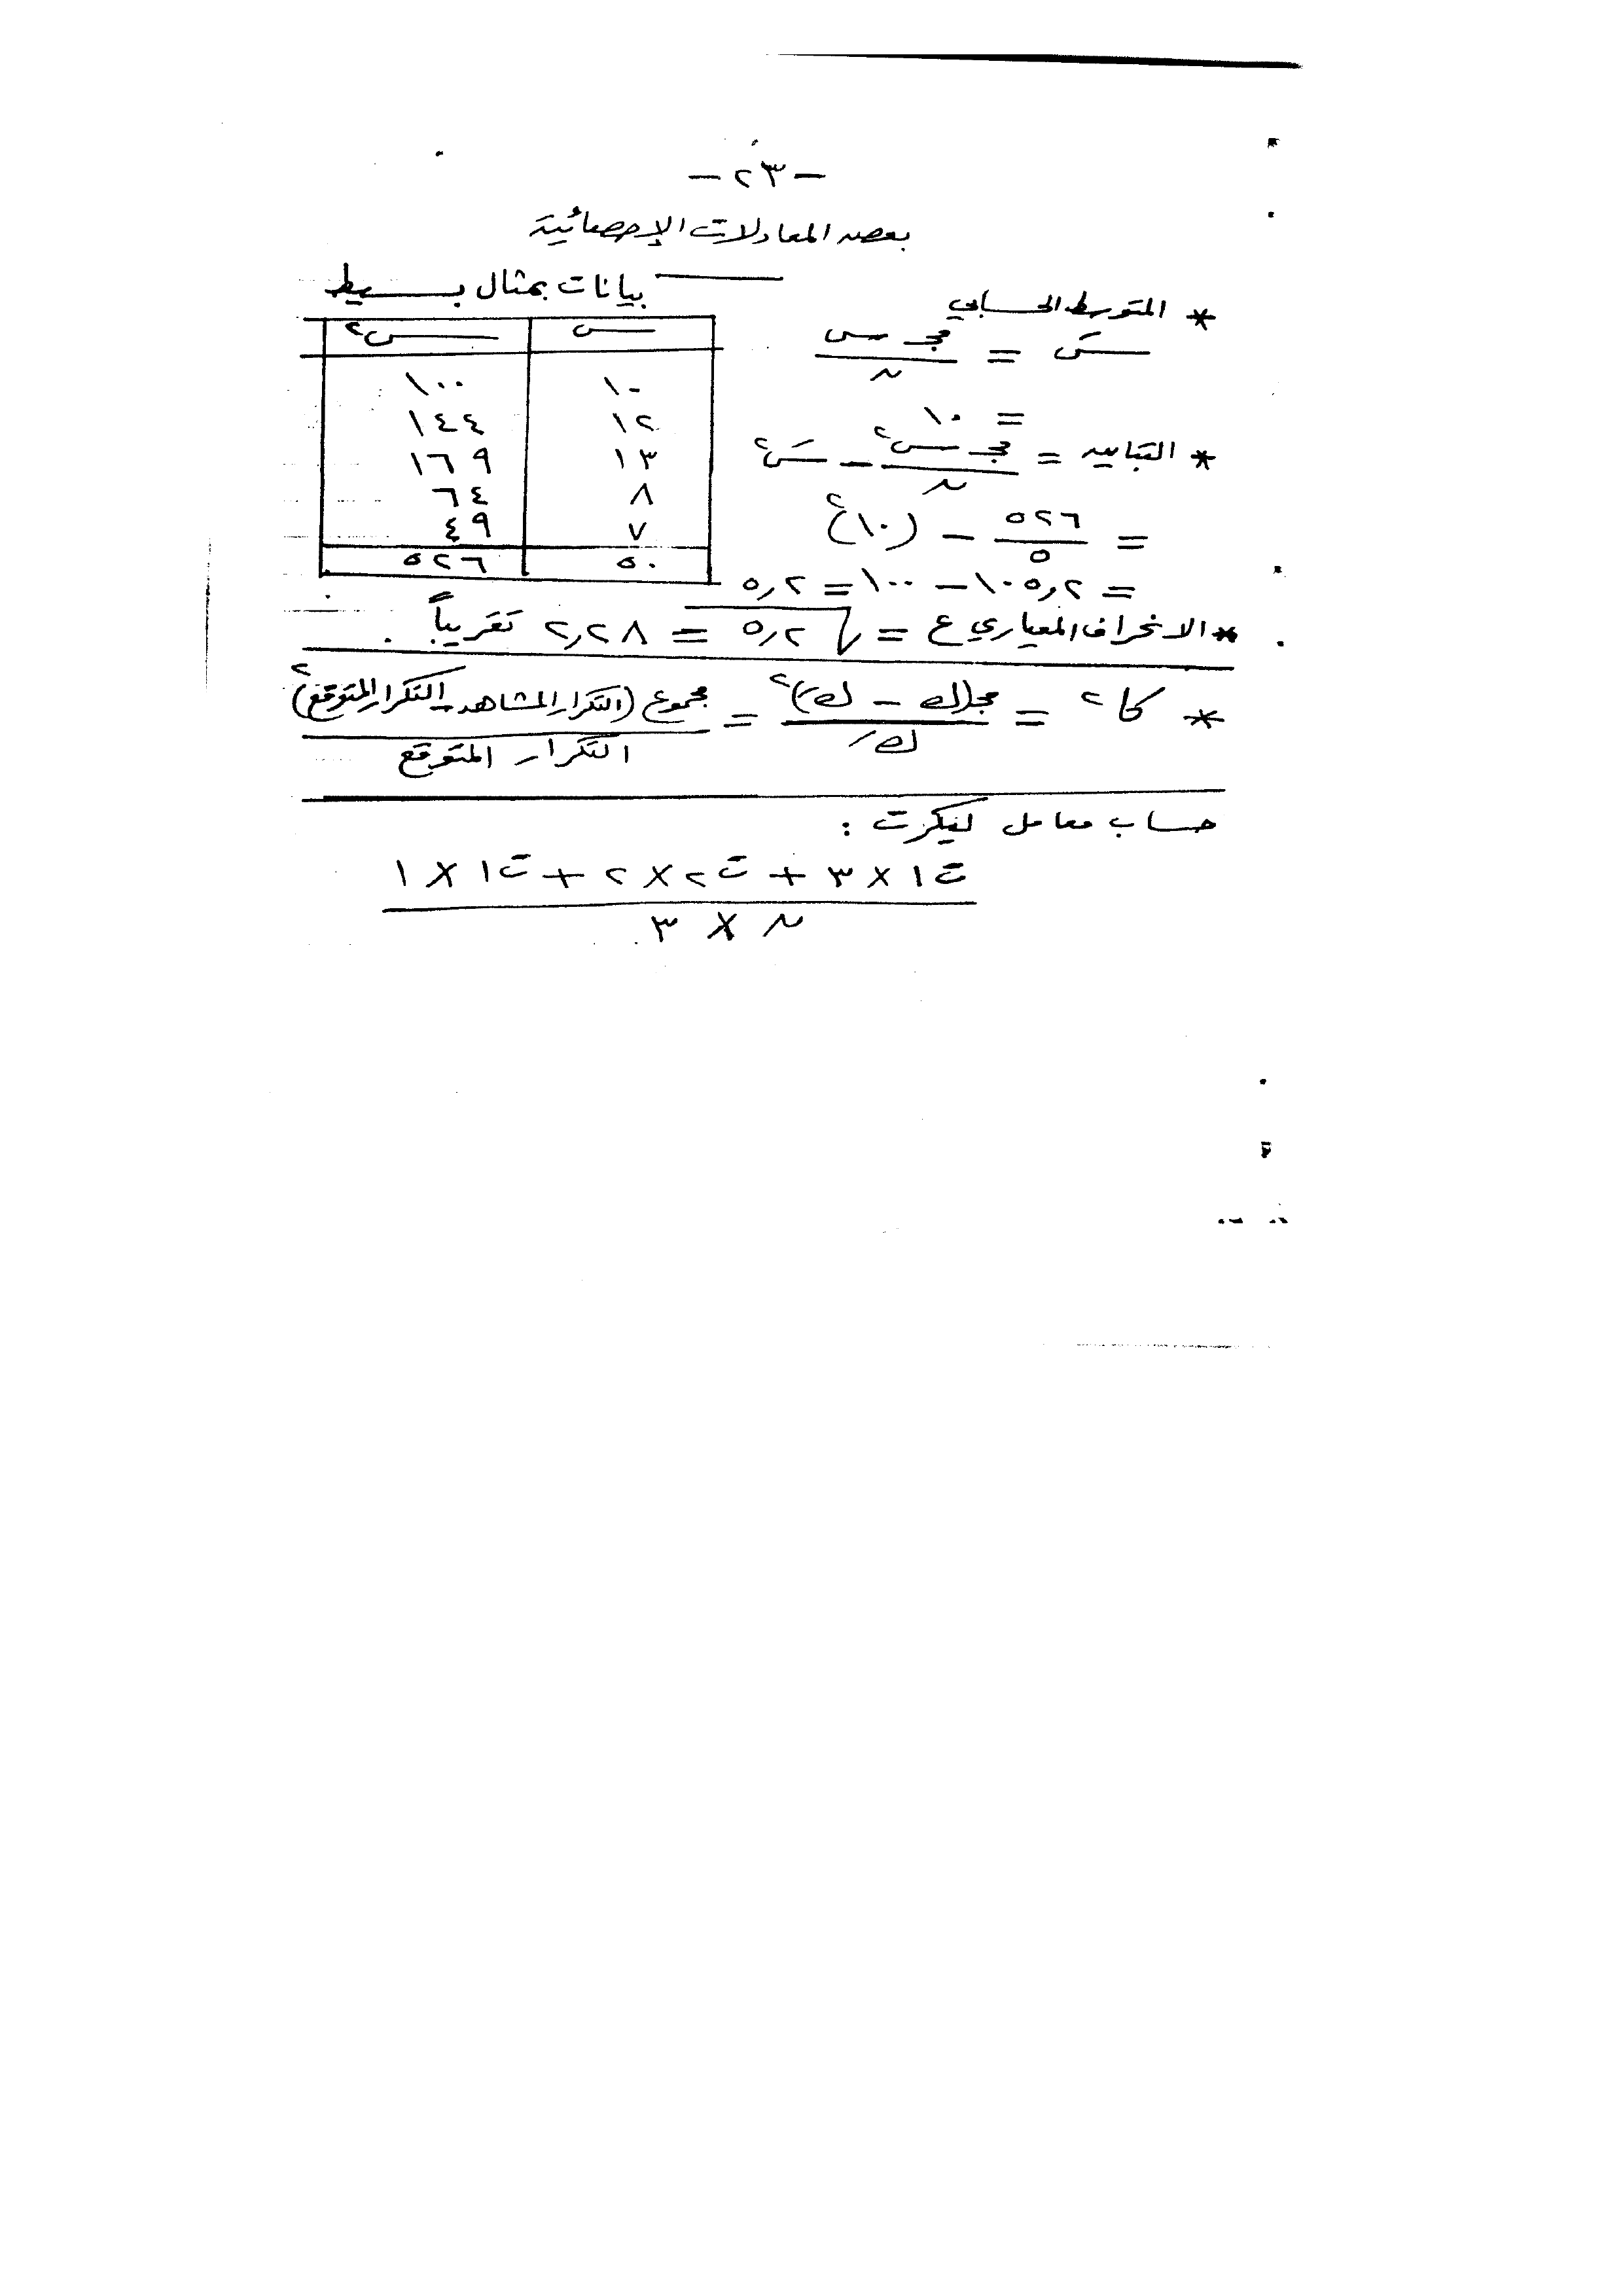 - ٢٣ -
بعض المعادلات الإحصائية
بيانات بمثال بسيط
س | س٢
١٠ | ١٠٠
١٢ | ١٤٤
١٣ | ١٦٩
٨ | ٦٤
٧ | ٤٩
٥٠ | ٥٢٦
* المتوسط الحسابي
سَ = مجـ س / ن
= ١٠
* التباين = مجـ س٢ / ن - سَ٢
= ٥٢٦ / ٥ - (١٠)٢
= ١٠٥,٢ - ١٠٠ = ٥,٢
* الانحراف المعياري ع = √٥,٢ = ٢,٢٨ تقريباً .
* كا٢ = مجـ(ك - كَ)٢ / كَ = مجموع (التكرار المشاهد - التكرار المتوقع)٢ / التكرار المتوقع
حساب معامل ليكرت :
ت١ × ٣ + ت٢ × ٢ + ت١ × ١
ن × ٣